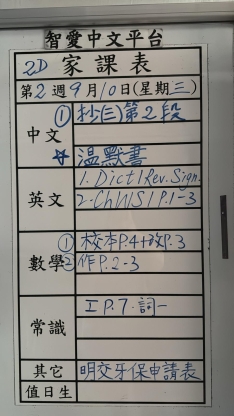 智愛中文平台
2D 家課表
第2週9月10日(星期三)
中文
① 抄(三)第2段
☆ 溫默書
英文
1. Dict 1 Rev. Sign.
2. Ch WS 1 P.1-3
數學
① 校本P.4+改P.3
② 作P.2-3
常識
工P.7.詞一
其它
明交牙保申請表
值日生